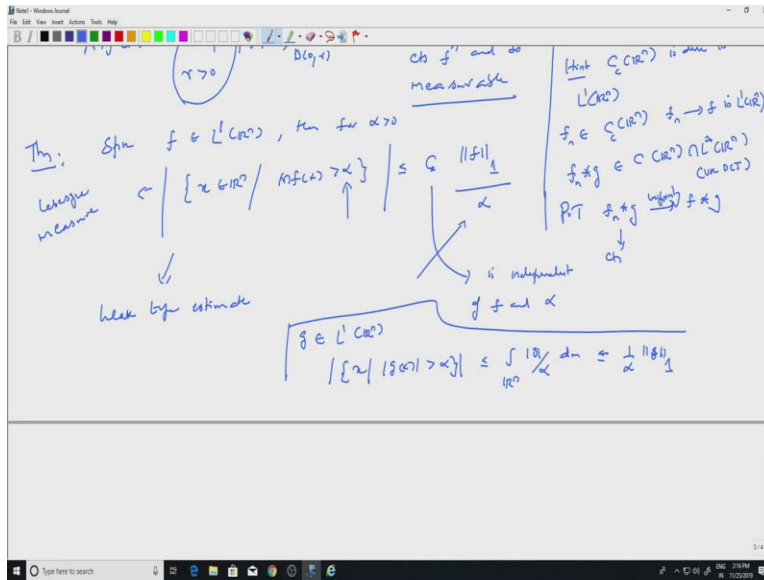 Note1 - Windows Journal
File Edit View Insert Actions Tools Help
r>0
B(0,r)
cts fⁿ and so
measurable
Hint C_c(ℝⁿ) is dense in
L¹(ℝⁿ)
f_n ∈ C_c(ℝⁿ) f_n → f in L¹(ℝⁿ)
f_n * g ∈ C(ℝⁿ) ∩ L^∞(ℝⁿ)
(use DCT)
P.T f_n * g uniformly → f * g
↓
cts
Thm: f ∈ L¹(ℝⁿ), then for α>0
| {x ∈ ℝⁿ / Mf(x) > α} | ≤ C ‖f‖₁ / α
Lebesgue
measure
is independent
of f and α
weak type estimate
g ∈ L¹(ℝⁿ)
| {x | |g(x)| > α} | ≤ ∫_{ℝⁿ} |g|/α dm ≤ 1/α ‖g‖₁
3/4
Type here to search
ENG 2:16 PM
IN 11/25/2019